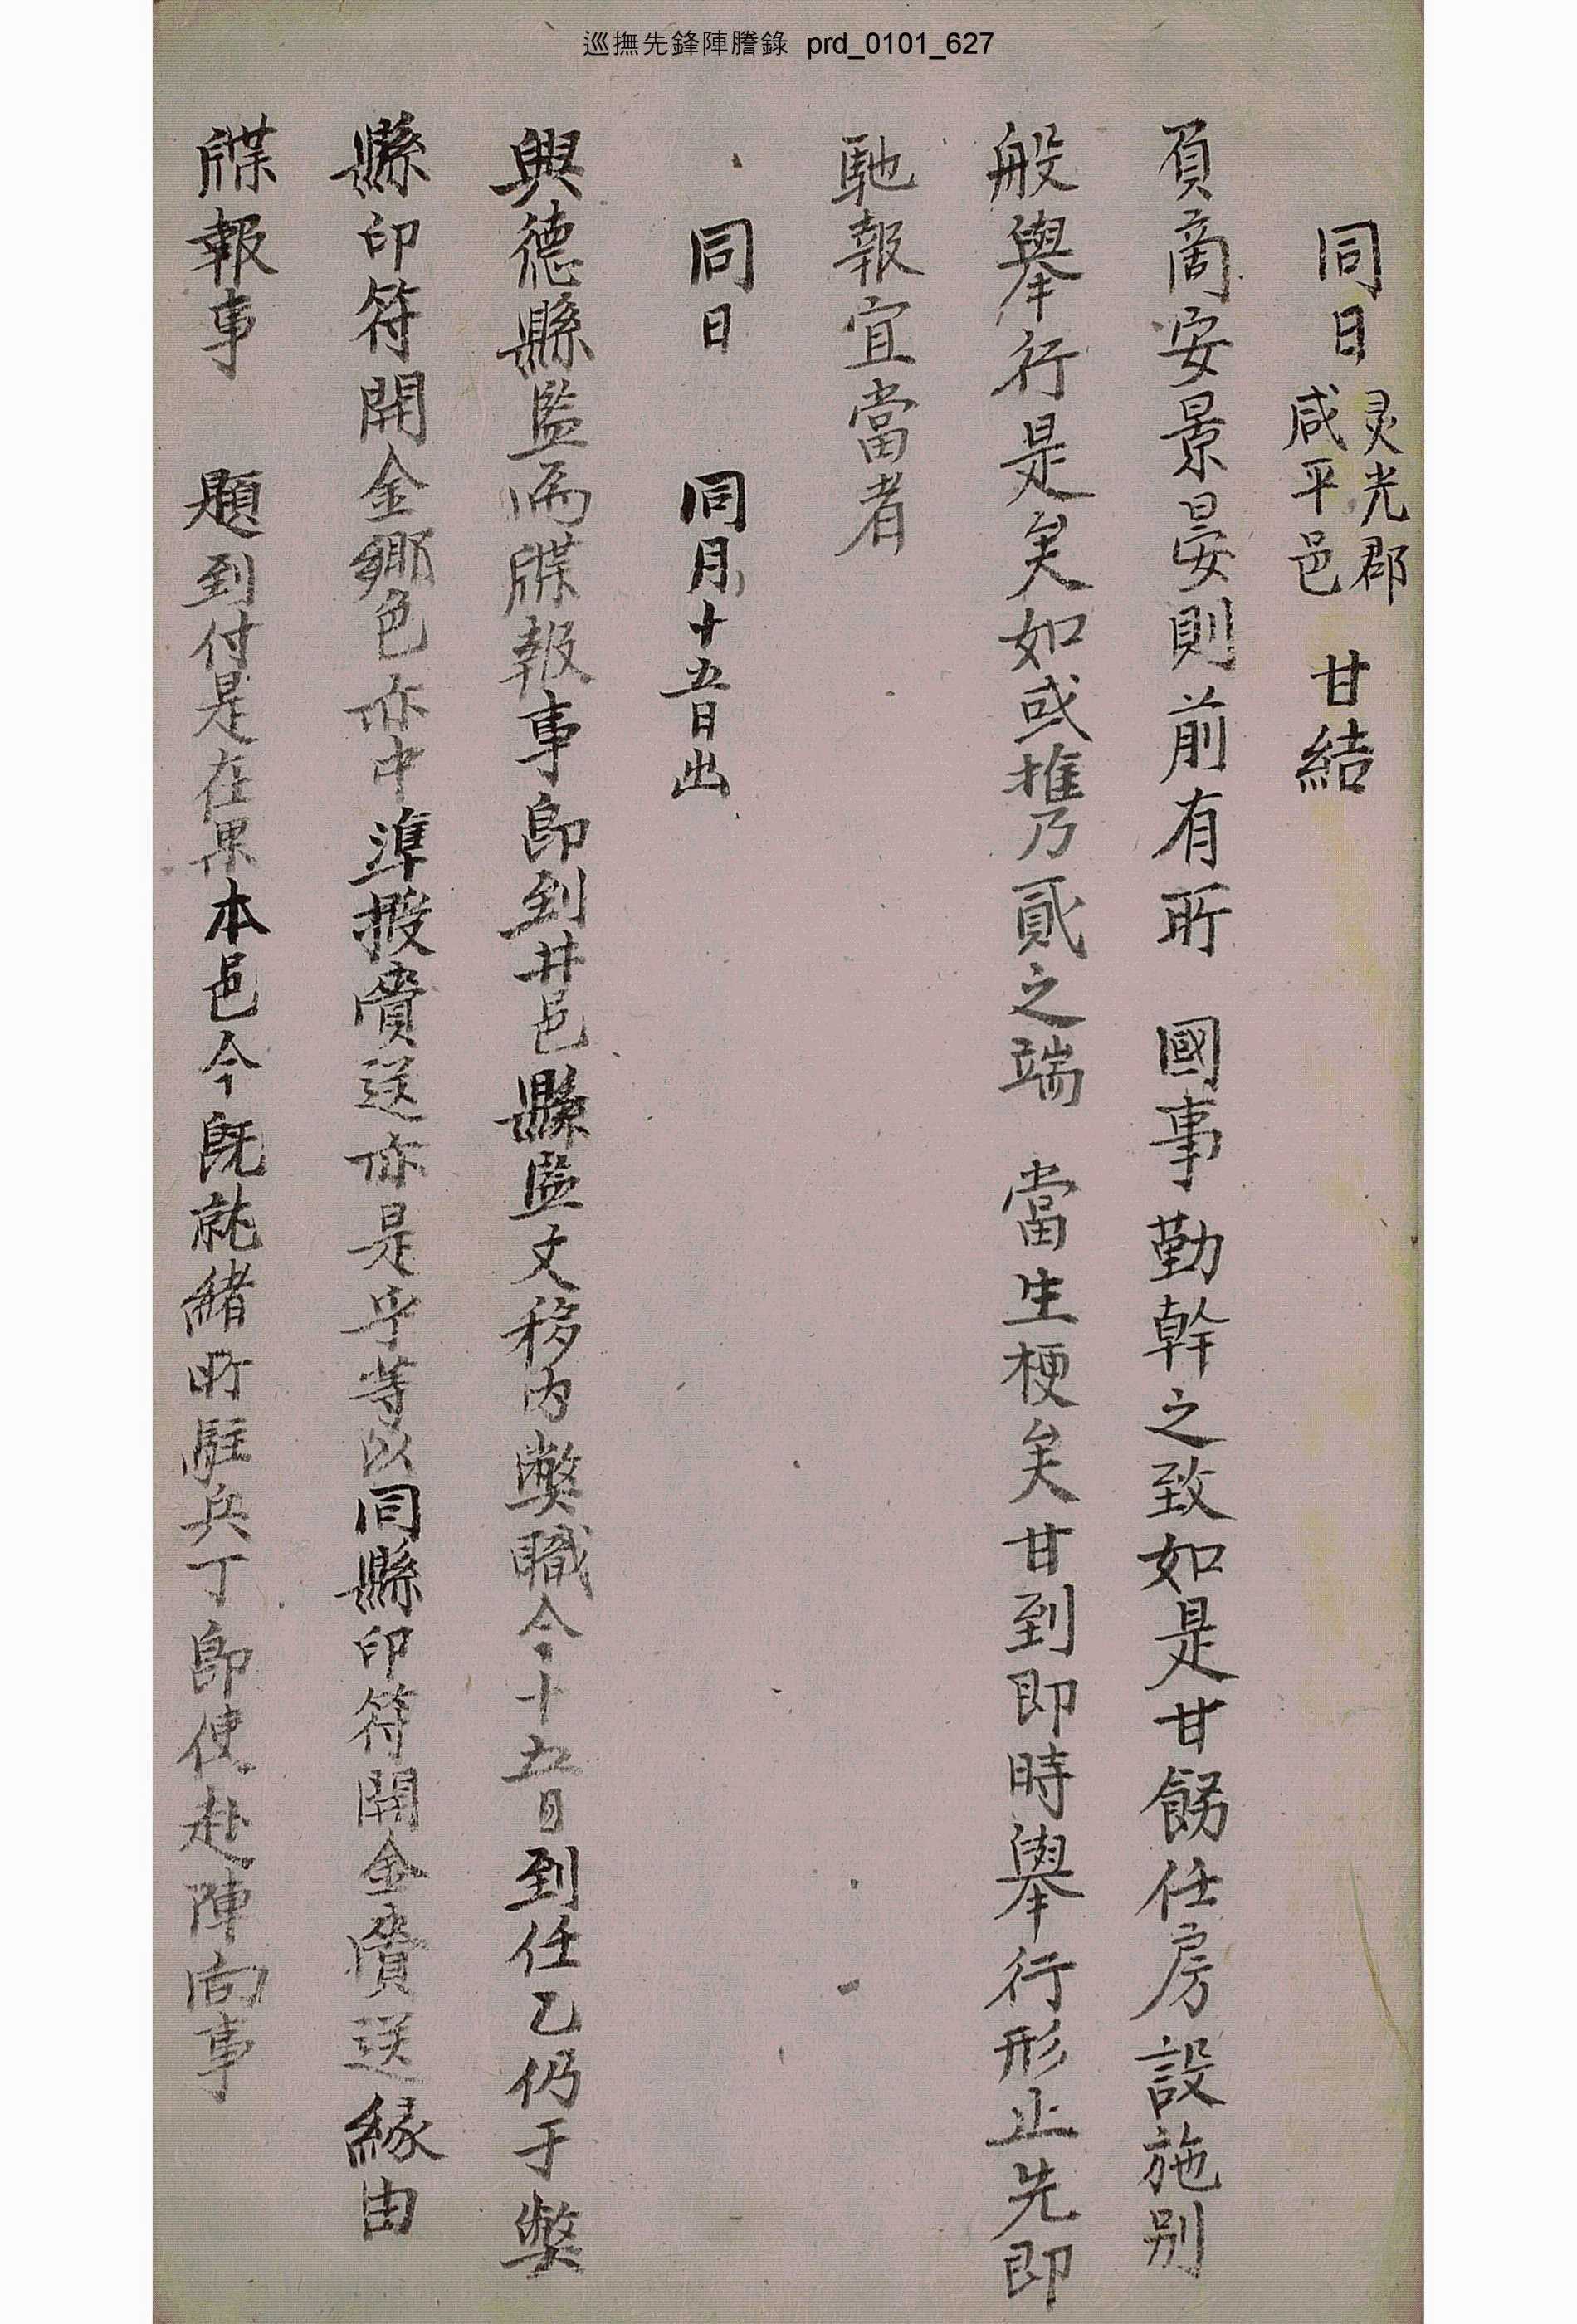 巡撫先鋒陣謄錄 prd_0101_627
同日 灵光郡 咸平邑 甘結
負商安景晏則前有所 國事勤幹之致如是甘飭任房設施別
般擧行是矣如或携乃貳之端 當生梗矣甘到即時擧行形止先即
馳報宜當者
同日 同月十五日出
興德縣監爲牒報事卽到井邑縣監文移內獘職今十五日到任乙仍于獘
縣印符開金鄕色亦中準授賫送亦是乎等以同縣印符開金賫送緣由
牒報事 題到付是在果本邑今旣就緖所駐兵丁卽使赴陣向事